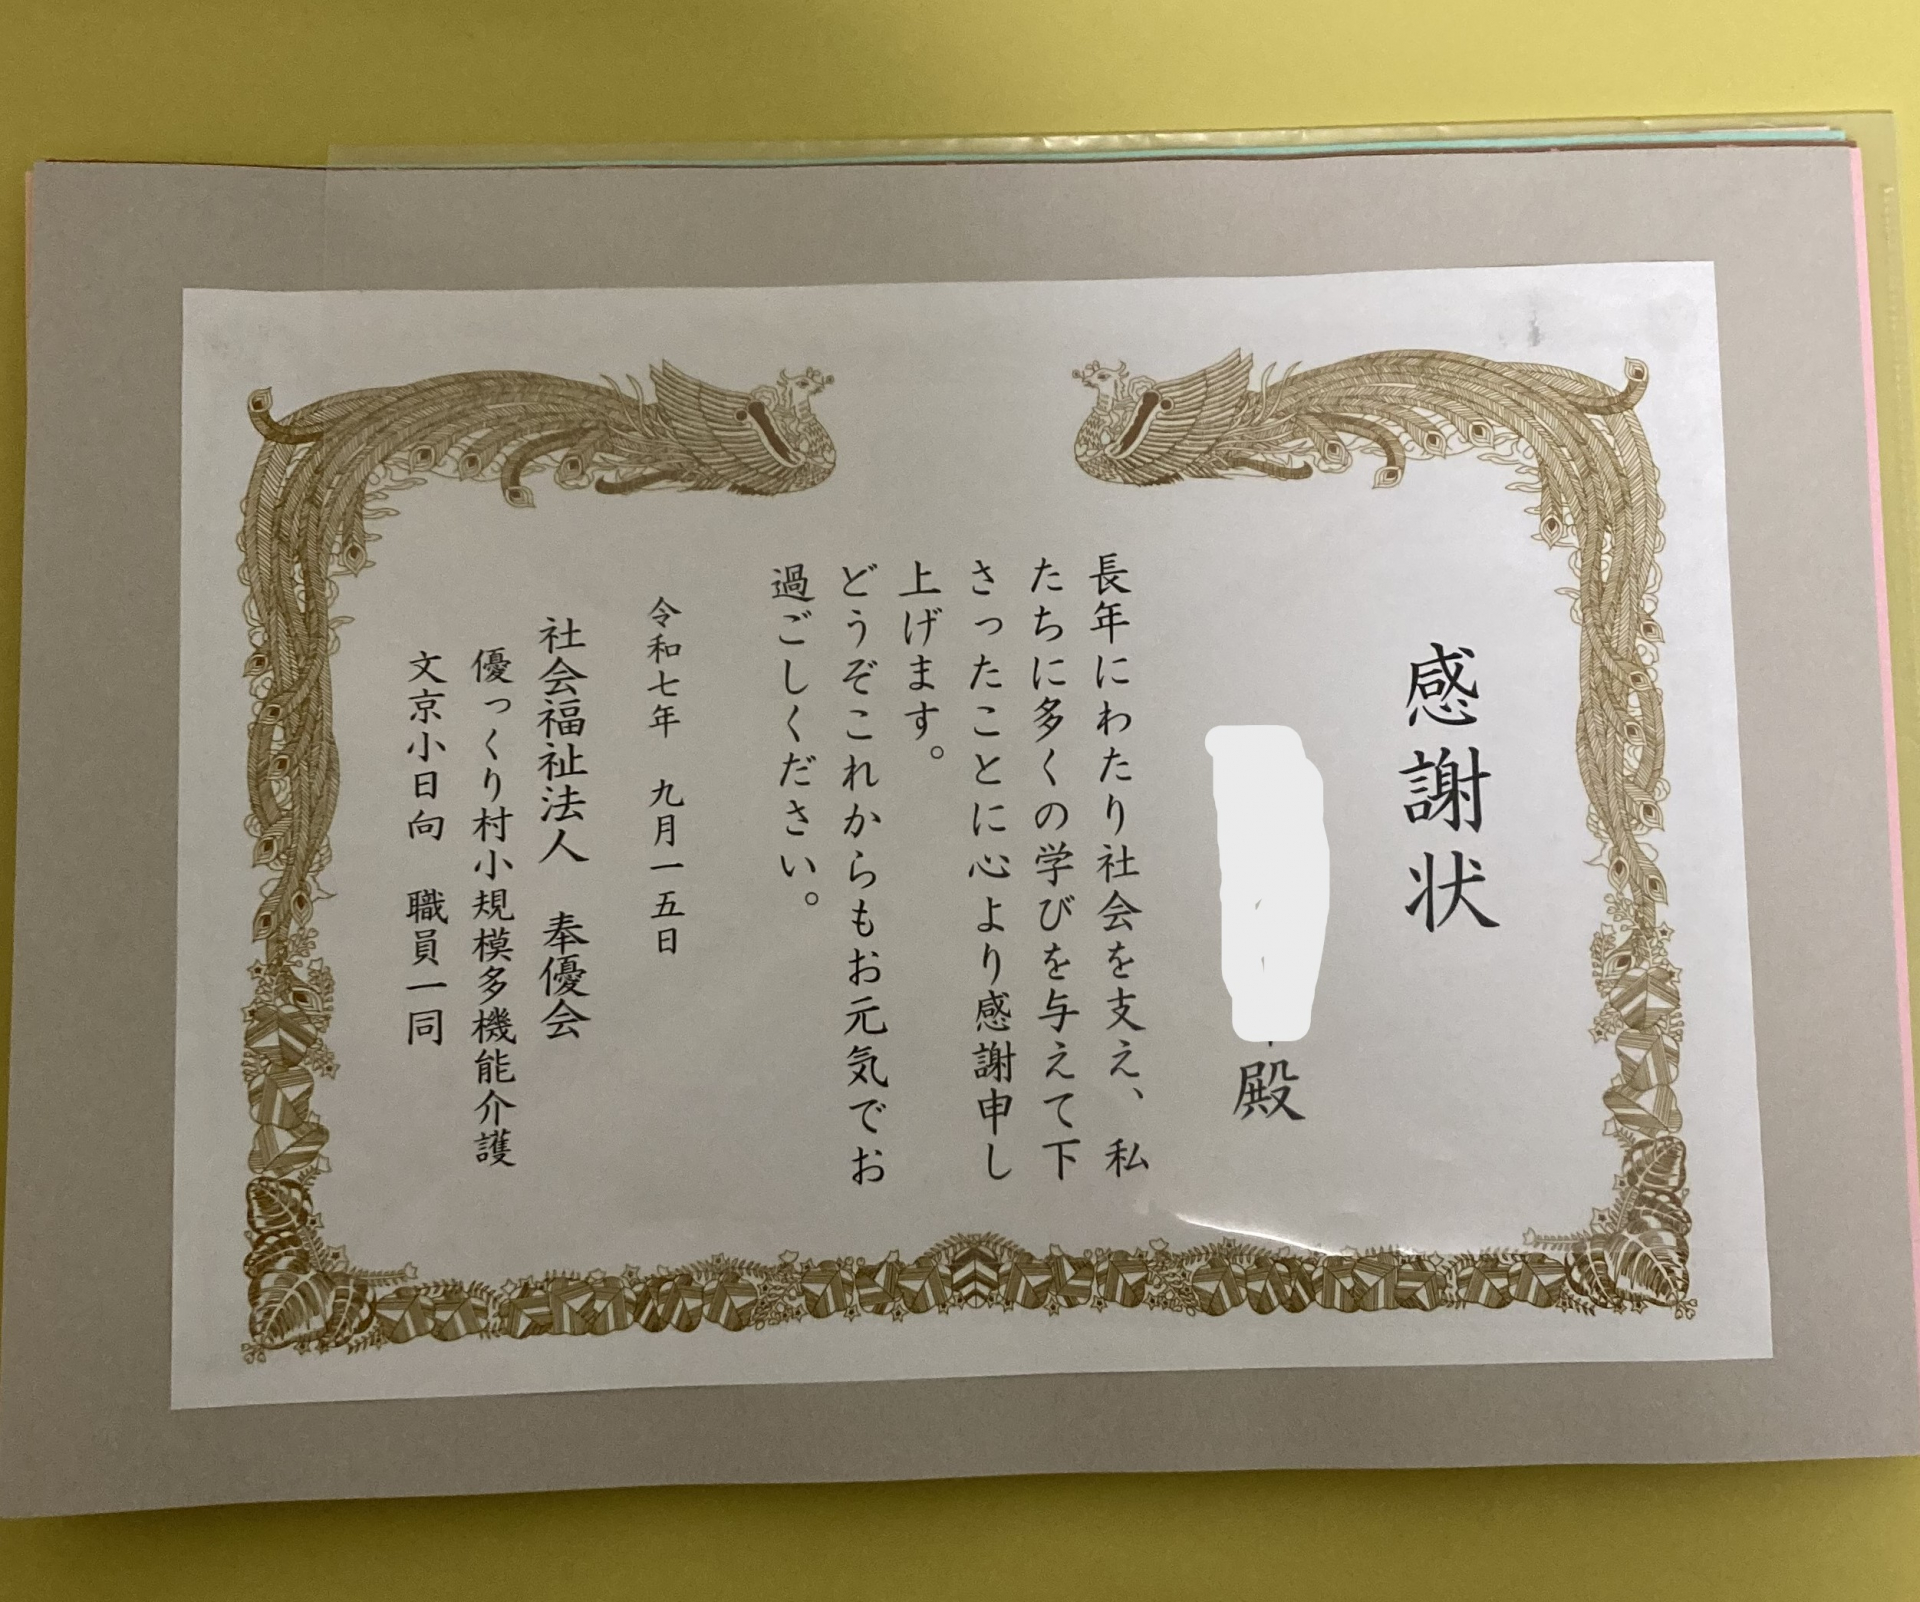 感謝状
殿
長年にわたり社会を支え、私
たちに多くの学びを与えて下
さったことに心より感謝申し
上げます。
どうぞこれからもお元気でお
過ごしください。
令和七年　九月一五日
社会福祉法人　奉優会
優っくり村小規模多機能介護
文京小日向　職員一同